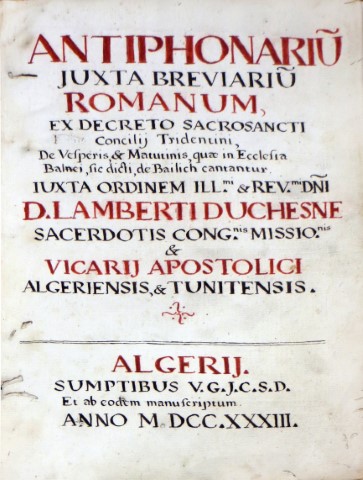 ANTIPHONARIŪ
JUXTA BREVIARIŪ
ROMANUM,
EX DECRETO SACROSANCTI
Concilij Tridentini,
De Vesperis, & Matutinis, quæ in Ecclesia
Balnei, sic dicti, de Bailich cantantur.
IUXTA ORDINEM ILL.mi & REV.mi DÑI
D. LAMBERTI DUCHESNE
SACERDOTIS CONG.nis MISSIO.nis
&
VICARIJ APOSTOLICI
ALGERIENSIS, & TUNITENSIS.
ALGERIJ.
SUMPTIBUS V.G.J.C.S.D.
Et ab eodem manuscriptum.
ANNO M.DCC.XXXIII.